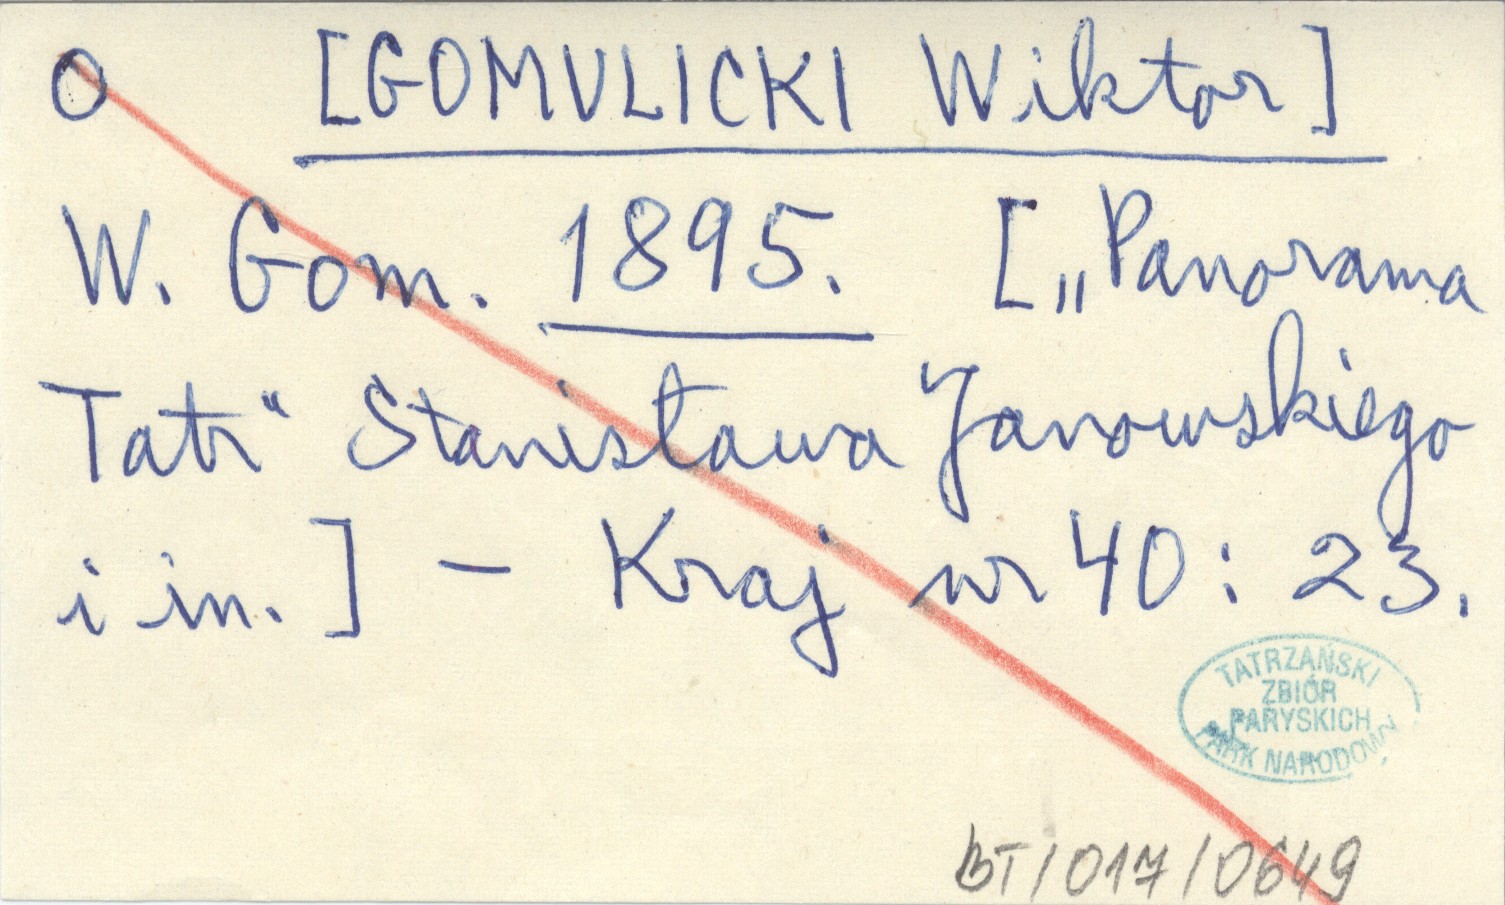 O [GOMULICKI Wiktor]
W. Gom. 1895. [„Panorama
Tatr" Stanisława Janowskiego
i in.] – Kraj nr 40: 23.
TATRZAŃSKI
ZBIÓR
PARYSKICH
PARK NARODOWY
BT/017/0649